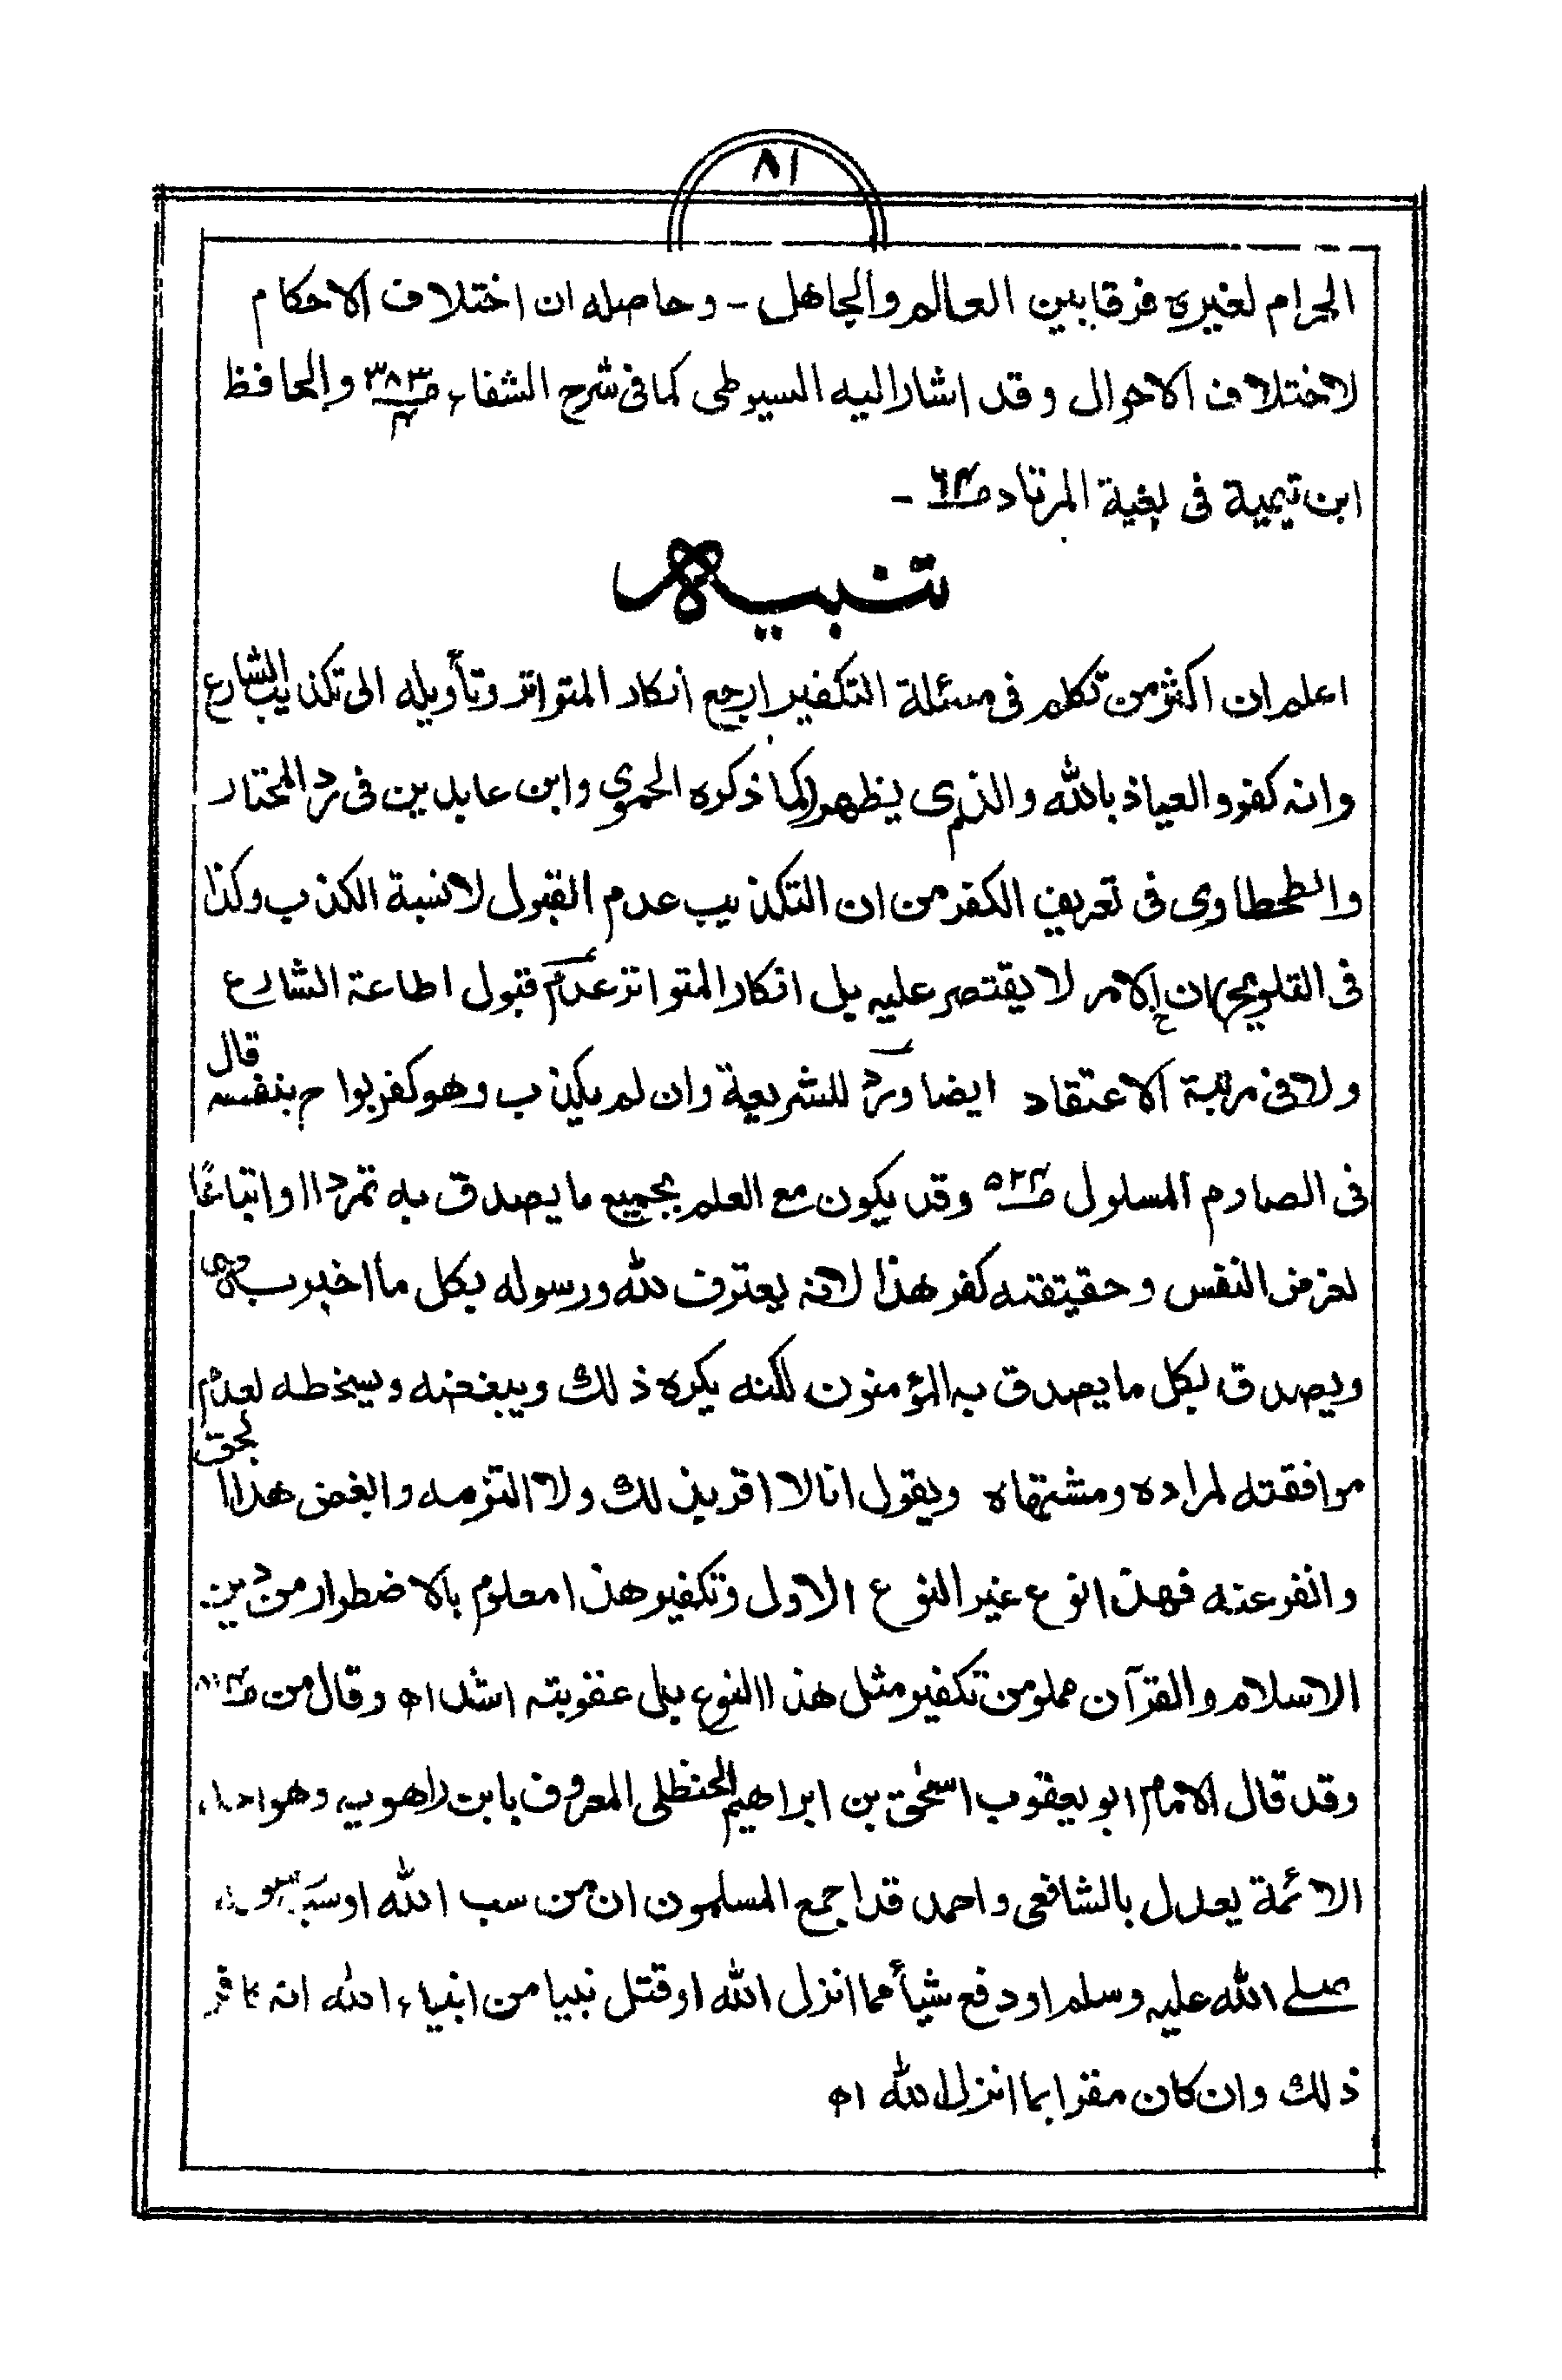 ٨١
الحرام لغيره فرقا بين العالم والجاهل - وحاصله ان اختلاف الاحكام
لاختلاف الاحوال وقد اشار اليه السيوطى كما فى شرح الشفاء صـ٣٨٣ ـ٤ والحافظ
ابن تيمية فى بغية المرتاد صـ٦٤ -
تنبيه
اعلم ان اكثر من تكلم فى مسئلة التكفير ارجع انكار المتواتر وتأويله الى تكذيب الشارع
وانه كفر والعياذ بالله والذى يظهر كما ذكره الحموى وابن عابدين فى رد المحتار
والطحطاوى فى تعريف الكفر من ان التكذيب عدم القبول لا نسبة الكذب وكذا
فى التلويح ان الامر لا يقتصر عليه بل انكار المتواتر عدم قبول اطاعة الشارع
ولا فى مرتبة الاعتقاد ايضا ورد للشريعة وان لم يكذب وهو كفر بواح بنفسه قال
فى الصارم المسلول صـ٥٢٤ وقد يكون مع العلم بجميع ما يصدق به تمردا او اتباعًا
لغرض النفس وحقيقته كفر هذا لانه يعترف لله ورسوله بكل ما اخبر به
ويصدق بكل ما يصدق به المؤمنون لكنه يكره ذلك ويبغضه ويسخطه لعدم
موافقته لمراده ومشتهاه ويقول انا لا اقر بذلك ولا التزمه وابغض هذا الحق
وانفر عنه فهذا نوع غير النوع الاول وتكفير هذا معلوم بالاضطرار من دين
الاسلام والقرآن مملو من تكفير مثل هذا النوع بل عقوبته اشد اه وقال من
وقد قال الامام ابو يعقوب اسحٰق بن ابراهيم الحنظلى المعروف بابن راهويه وهو احد
الائمة يعدل بالشافعى واحمد قد اجمع المسلمون ان من سب الله او سب رسوله
صلى الله عليه وسلم او دفع شيأ مما انزل الله او قتل نبيا من انبياء الله انه كافر
ذلك وان كان مقرا بما انزل الله اه